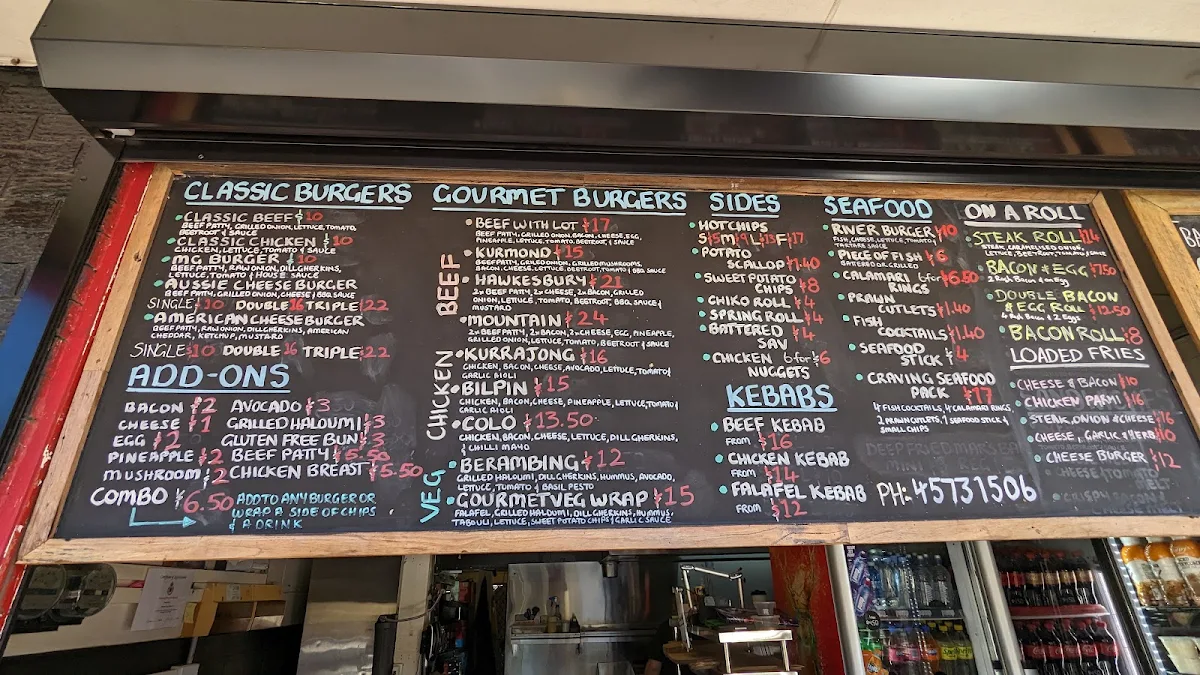 CLASSIC BURGERS
CLASSIC BEEF $10
BEEF PATTY, GRILLED ONION, LETTUCE, TOMATO,
BEETROOT & SAUCE
CLASSIC CHICKEN $10
CHICKEN, LETTUCE, TOMATO & SAUCE
MG BURGER $10
BEEF PATTY, RAW ONION, DILL GHERKINS,
LETTUCE, TOMATO & HOUSE SAUCE
AUSSIE CHEESE BURGER
BEEF PATTY, GRILLED ONION, CHEESE & BBQ SAUCE
SINGLE $10 DOUBLE 16 TRIPLE $22
AMERICAN CHEESE BURGER
BEEF PATTY, RAW ONION, DILL GHERKINS, AMERICAN
CHEDDAR, KETCHUP, MUSTARD
SINGLE $10 DOUBLE 16 TRIPLE $22
ADD-ONS
BACON $2 AVOCADO $3
CHEESE $1 GRILLED HALOUMI $3
EGG $2 GLUTEN FREE BUN $3
PINEAPPLE $2 BEEF PATTY $5.50
MUSHROOM $2 CHICKEN BREAST $5.50
COMBO $6.50 ADD TO ANY BURGER OR
WRAP A SIDE OF CHIPS
& A DRINK
GOURMET BURGERS
BEEF
BEEF WITH LOT $17
BEEF PATTY, GRILLED ONION, BACON, CHEESE, EGG,
PINEAPPLE, LETTUCE, TOMATO, BEETROOT & SAUCE
KURMOND $15
BEEF PATTY, GRILLED ONION, GRILLED MUSHROOMS,
BACON, CHEESE, LETTUCE, BEETROOT, TOMATO & BBQ SAUCE
HAWKESBURY $21
2x BEEF PATTY, 2x CHEESE, 2x BACON, GRILLED
ONION, LETTUCE, TOMATO, BEETROOT, BBQ SAUCE &
MUSTARD
MOUNTAIN $24
2x BEEF PATTY, 2x BACON, 2x CHEESE, EGG, PINEAPPLE,
GRILLED ONION, LETTUCE, TOMATO, BEETROOT & SAUCE
CHICKEN
KURRAJONG $16
CHICKEN, BACON, CHEESE, AVOCADO, LETTUCE, TOMATO &
GARLIC AIOLI
BILPIN $15
CHICKEN, BACON, CHEESE, PINEAPPLE, LETTUCE, TOMATO &
GARLIC AIOLI
COLO $13.50
CHICKEN, BACON, CHEESE, LETTUCE, DILL GHERKINS,
& CHILLI MAYO
VEG
BERAMBING $12
GRILLED HALOUMI, DILL GHERKINS, HUMMUS, AVOCADO,
LETTUCE, TOMATO & BASIL PESTO
GOURMET VEG WRAP $15
FALAFEL, GRILLED HALOUMI, DILL GHERKINS, HUMMUS,
TABOULI, LETTUCE, SWEET POTATO CHIPS & GARLIC SAUCE
SIDES
HOT CHIPS
POTATO
SCALLOP $1.40
SWEET POTATO
CHIPS $8
CHIKO ROLL $4
SPRING ROLL $4
BATTERED
SAV $4
CHICKEN 6 for $6
NUGGETS
KEBABS
BEEF KEBAB
FROM $16
CHICKEN KEBAB
FROM $14
FALAFEL KEBAB
FROM $12
SEAFOOD
RIVER BURGER $10
FISH, CHEESE, LETTUCE, TOMATO &
TARTARE SAUCE
PIECE OF FISH $6
BATTERED OR GRILLED
CALAMARI 6 for $6.50
RINGS
PRAWN
CUTLETS $1.40
FISH
COCKTAILS $1.40
SEAFOOD
STICK $4
CRAVING SEAFOOD
PACK $17
4 FISH COCKTAILS, 4 CALAMARI RINGS,
2 PRAWN CUTLETS, 1 SEAFOOD STICK &
SMALL CHIPS
PH: 45731506
ON A ROLL
STEAK ROLL $14
STEAK, CARAMELISED ONION,
LETTUCE, BEETROOT, TOMATO & SAUCE
BACON & EGG $7.50
DOUBLE BACON
& EGG ROLL $12.50
BACON ROLL $8
LOADED FRIES
CHEESE & BACON $10
CHICKEN PARMI $16
STEAK, ONION & CHEESE $16
CHEESE, GARLIC & HERB $10
CHEESE BURGER $12